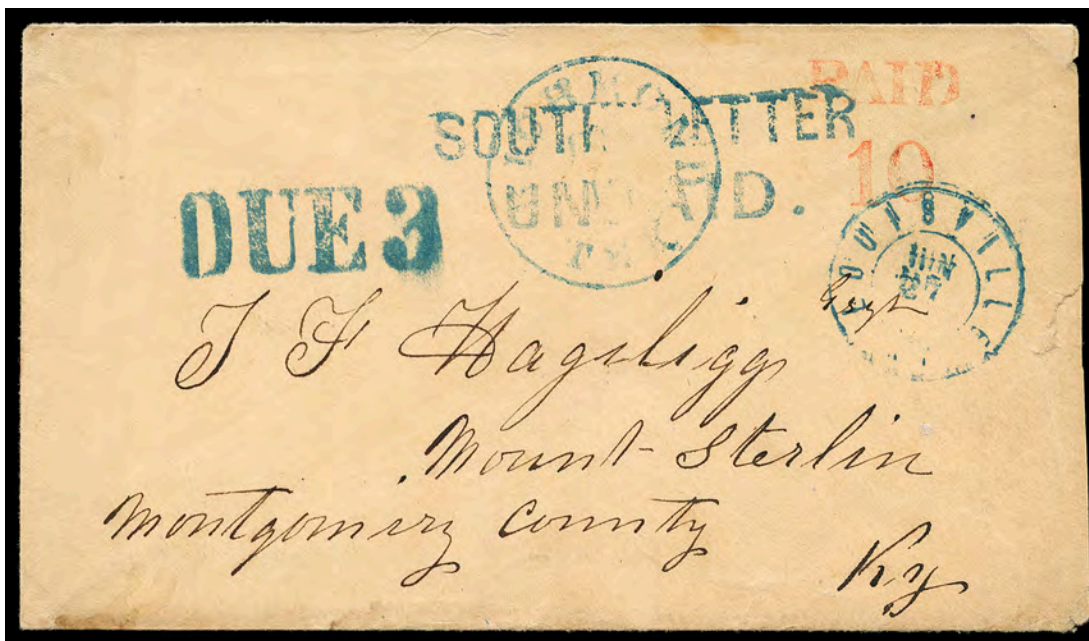 PAID
10
SOUTH LETTER
UNPAID.
DUE 3
LOUISVILLE
JUN
27
Esqr
J F
Mount Sterlin
Montgomery County
Ky